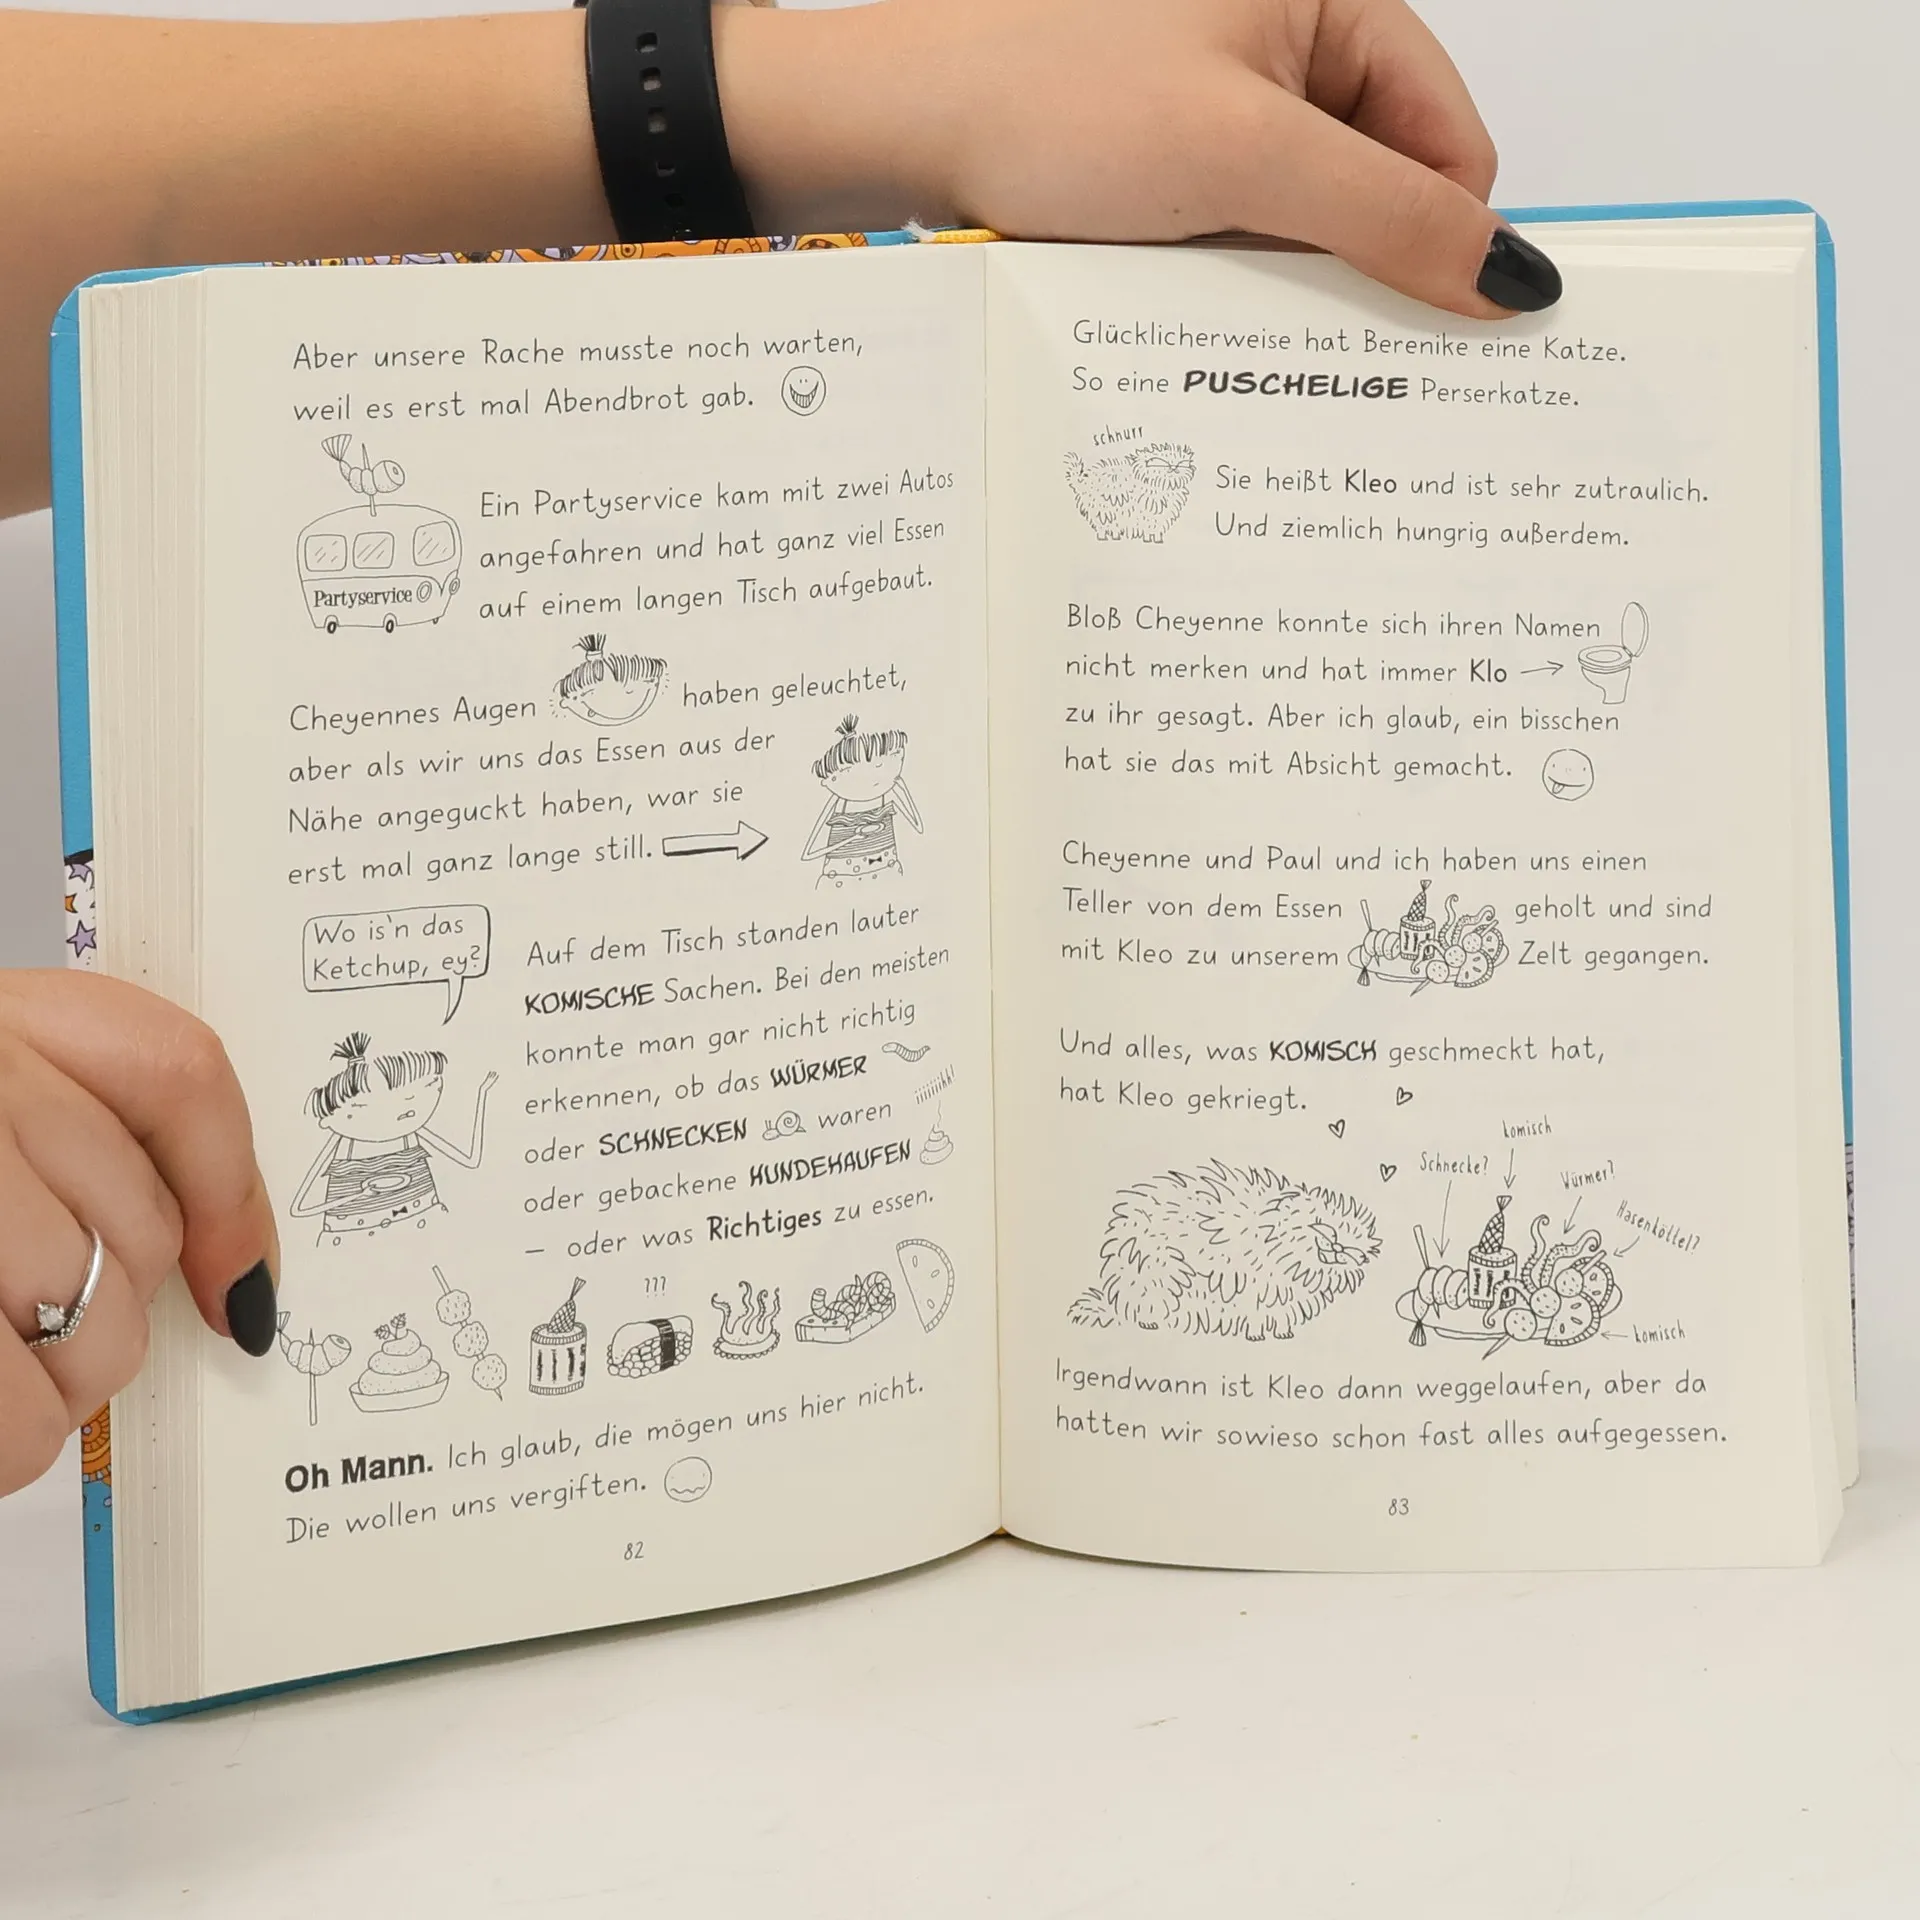 Aber unsere Rache musste noch warten,
weil es erst mal Abendbrot gab.
Partyservice
Ein Partyservice kam mit zwei Autos
angefahren und hat ganz viel Essen
auf einem langen Tisch aufgebaut.
Cheyennes Augen haben geleuchtet,
aber als wir uns das Essen aus der
Nähe angeguckt haben, war sie
erst mal ganz lange still.
Wo is'n das
Ketchup, ey?
Auf dem Tisch standen lauter
KOMISCHE Sachen. Bei den meisten
konnte man gar nicht richtig
erkennen, ob das WÜRMER
oder SCHNECKEN waren
iiiiiiihh!
oder gebackene HUNDEHAUFEN
– oder was Richtiges zu essen.
???
Oh Mann. Ich glaub, die mögen uns hier nicht.
Die wollen uns vergiften.
82
Glücklicherweise hat Berenike eine Katze.
So eine PUSCHELIGE Perserkatze.
schnurr
Sie heißt Kleo und ist sehr zutraulich.
Und ziemlich hungrig außerdem.
Bloß Cheyenne konnte sich ihren Namen
nicht merken und hat immer Klo
zu ihr gesagt. Aber ich glaub, ein bisschen
hat sie das mit Absicht gemacht.
Cheyenne und Paul und ich haben uns einen
Teller von dem Essen geholt und sind
mit Kleo zu unserem Zelt gegangen.
Und alles, was KOMISCH geschmeckt hat,
hat Kleo gekriegt.
komisch
Schnecke?
Würmer?
Hasenköttel?
komisch
Irgendwann ist Kleo dann weggelaufen, aber da
hatten wir sowieso schon fast alles aufgegessen.
83